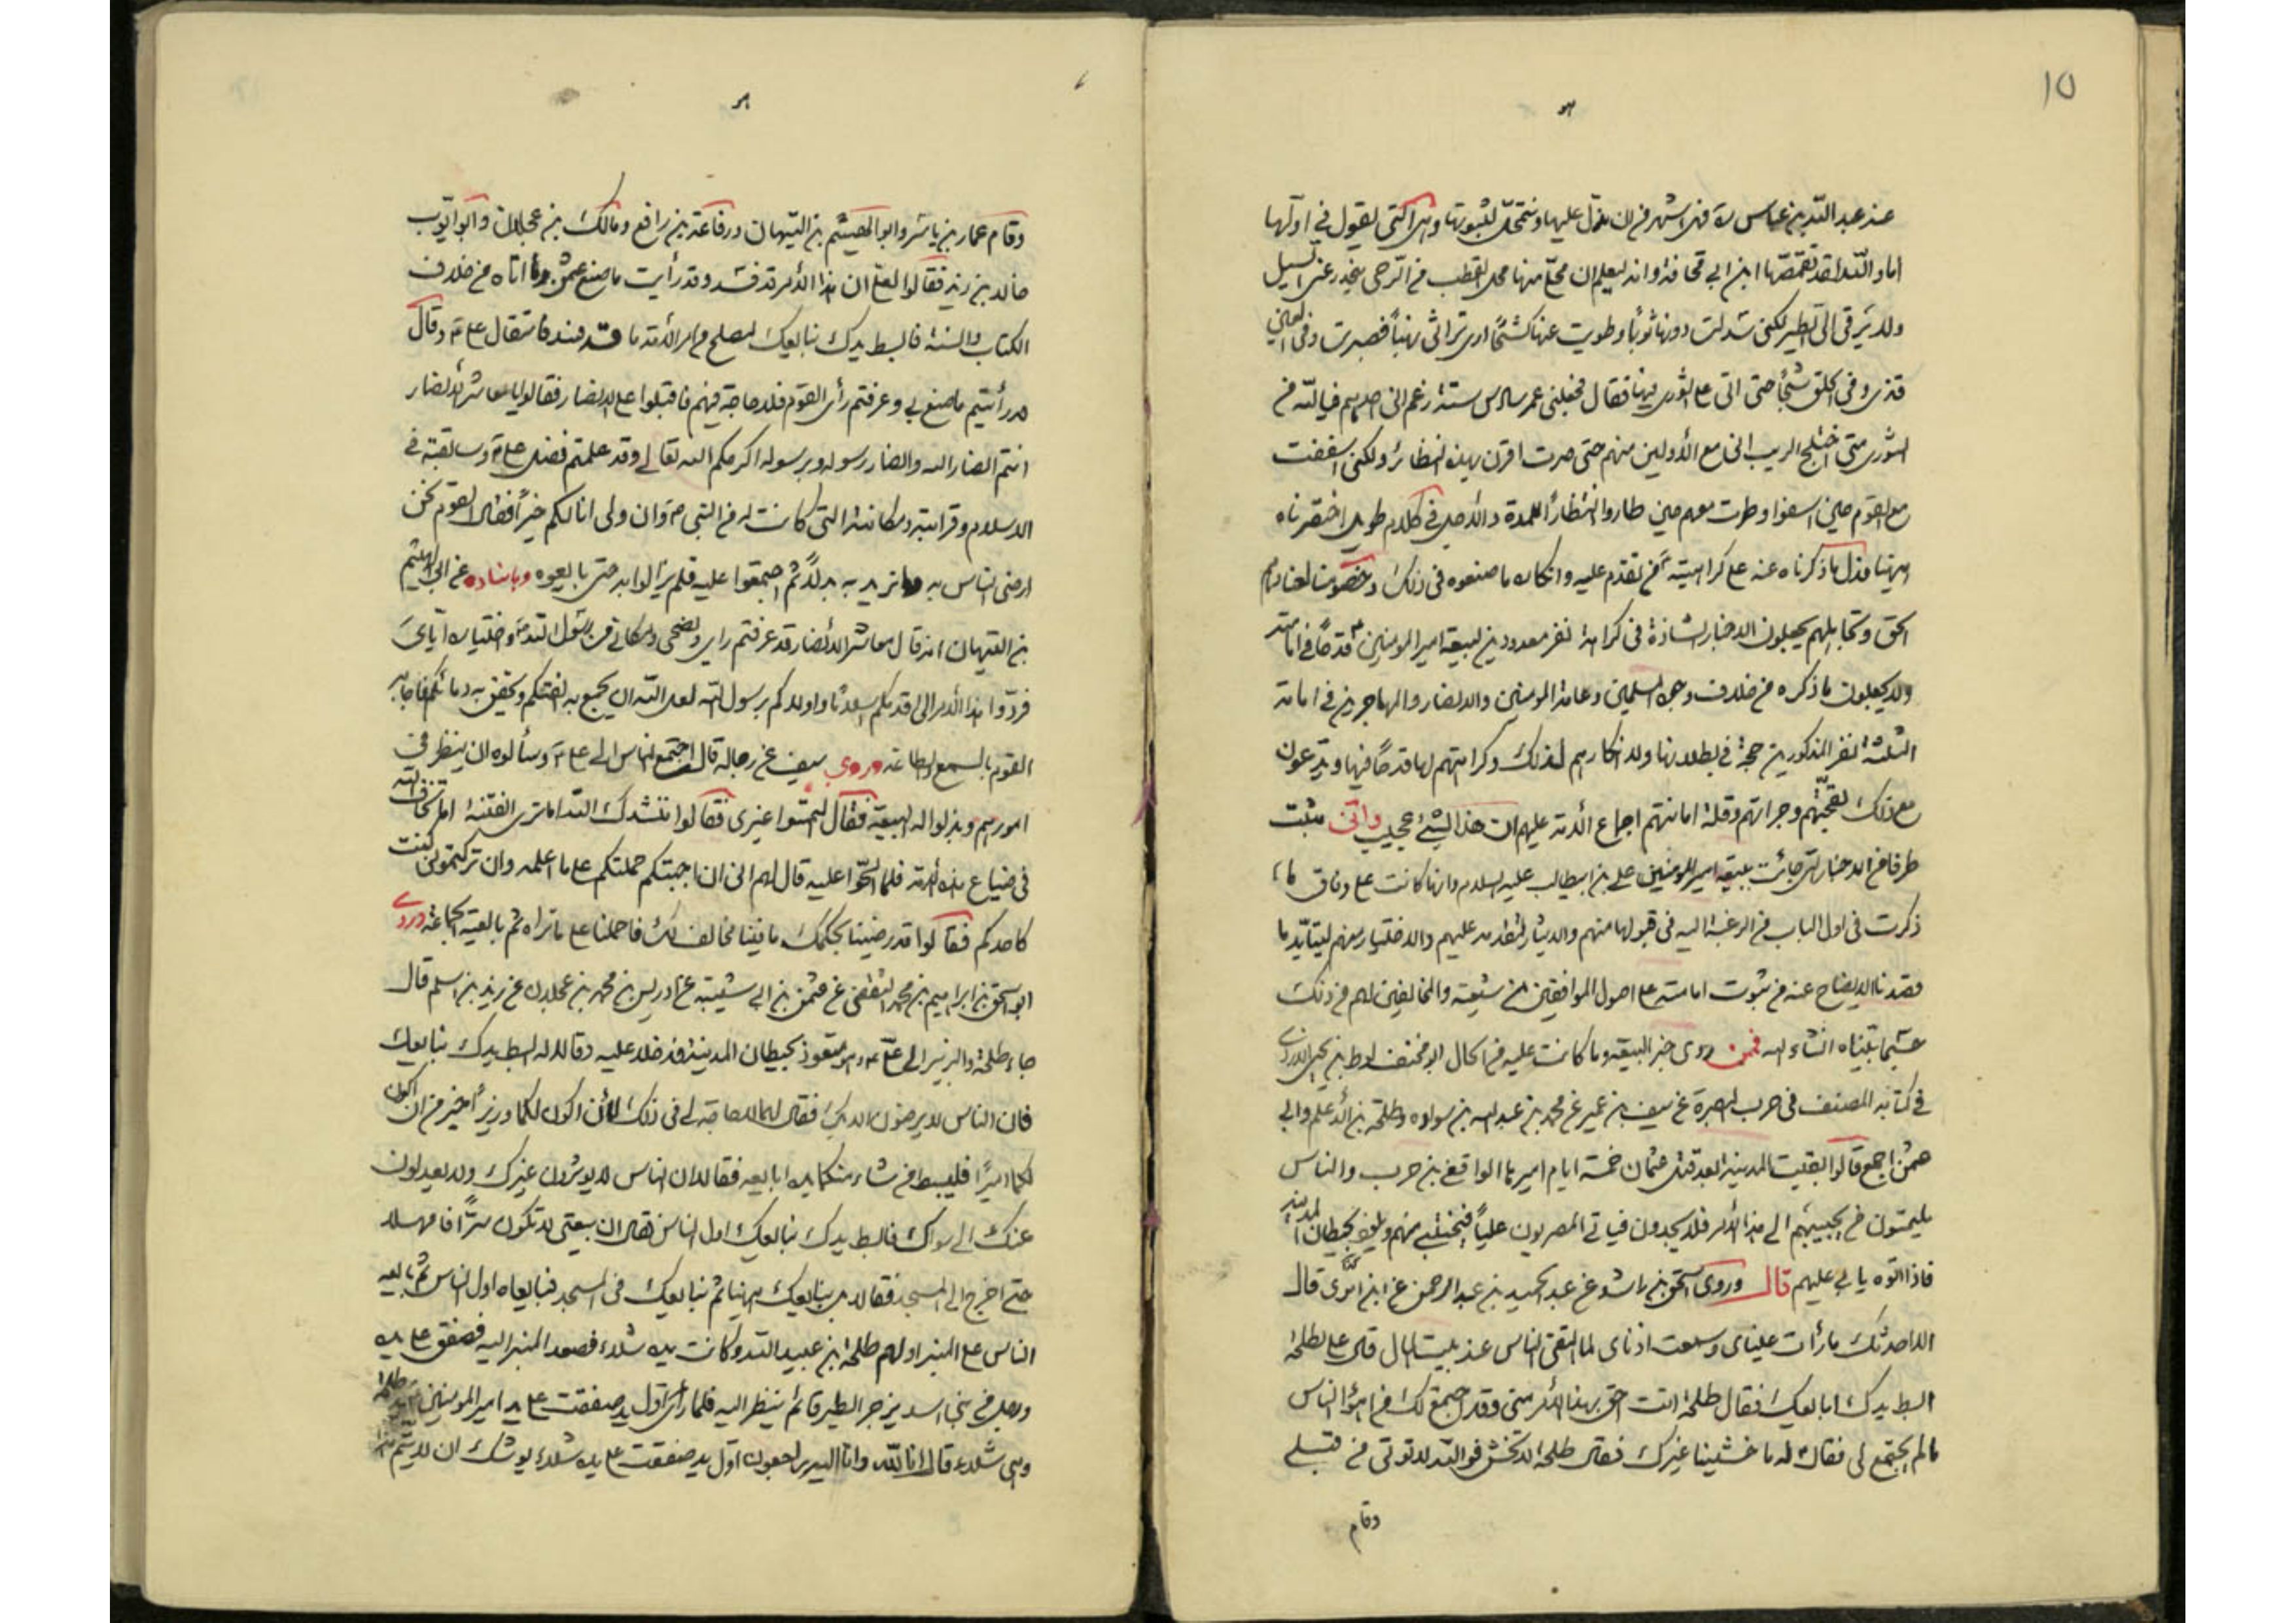 ١٥
عند عبد الله بن عباس ره فهي اشهر من ان ندل عليها ونتمحل لثبوتها وهي التي يقول في اولها
اما والله لقد تقمصها ابن ابي قحافة وانه ليعلم ان محلي منها محل القطب من الرحى ينحدر عني السيل
ولا يرقى الي الطير لكني سدلت دونها ثوبا وطويت عنها كشحا ارى تراثي نهبا فصبرت وفي العين
قذى وفي الحلق شجا حتى اتى على الشورى فيها فقال فجعلني عمر سادس ستة زعم اني احدهم فيالله من
الشورى متى اختلج الريب في مع الأولين منهم حتى صرت اقرن بهذه النظائر ولكني اسففت
مع القوم حين اسفوا وطرت معهم حين طاروا انتظارا للمدة والأصل في كلام طويل اختصرناه
ههنا فدل ما ذكرناه عنه على كراهيته من تقدم عليه وانكاره ما صنعوه في ذلك وخصومنا لعنادهم
الحق وتجاهلهم يجعلون الاخبار الشاذة في كراهة نفر معدودين لبيعة امير المؤمنين ع قدحا في امامته
ولا يجعلون ما ذكره من خلاف وجوه المسلمين وعامة المؤمنين والانصار والمهاجرين في امامة
الثلثة نفر المذكورين حجة في بطلانها ولا انكارهم لذلك وكراهتهم لها قدحا فيها ويدعون
مع ذلك لقحتهم وجرأتهم وقلة امانتهم اجماع الأمة عليهم ان هذا لشيء عجيب واني مثبت
طرفا من الاخبار التي جائت ببيعة امير المؤمنين علي بن ابيطالب عليه السلام وانها كانت على وفاق ما
ذكرت في اول الباب من الرغبة اليه في قبولها منهم والايثار لتقدمه عليهم والاختيار منهم ليتأيد ما
قصدنا الايضاح عنه من ثبوت امامته على اصول الموافقين من شيعته والمخالفين لهم في ذلك
حسبما بيناه انشاء الله فممن روى خبر البيعة وما كانت عليه من الحال ابو مخنف لوط بن يحيى الازدي
في كتابه المصنف في حرب البصرة عن سيف بن عمير عن محمد بن عبد الله بن سواده وطلحة بن الأعلم وابي
عثمن اجمع قالوا بقيت المدينة بعد قتل عثمان خمسة ايام اميرها الغافقي بن حرب والناس
يلتمسون من يجيبهم الى هذا الأمر فلا يجدون فيأتي المصريون عليا فيختبي منهم ويلوذ بحيطان المدينة
فاذا اتوه يابى عليهم قال وروى اسحق بن راشد عن عبد الحميد بن عبد الرحمن عن ابن ابزى قال
الا احدثك ما رأت عيناي وسمعت اذناي لما التقى الناس عند بيت المال قال علي لطلحة
ابسط يدك ابايعك فقال طلحة انت احق بهذا الأمر مني وقد اجتمع لك من اهواء الناس
ما لم يجتمع لي فقال له ما خشينا غيرك فقال طلحة لا تخش فوالله لا تؤتى من قبلي
وقام
وقام عمار بن ياسر وابو الهيثم بن التيهان ورفاعة بن رافع ومالك بن عجلان وابو ايوب
خالد بن زيد فقالوا لعلي ان هذا الأمر قد فسد وقد رأيت ما صنع عثمن وما اتاه من خلاف
الكتاب والسنة فابسط يدك نبايعك لتصلح من امر الأمة ما قد فسد فاستقال علي ع وقال
قد رأيتم ما صنع بي وعرفتم رأى القوم فلا حاجة لي فيهم فاقبلوا على الانصار فقالوا يا معاشر الأنصار
انتم انصار الله وانصار رسوله وبرسوله اكرمكم الله تعالى وقد علمتم فضل علي ع وسابقته في
الاسلام وقرابته ومكانته التي كانت له من النبي ص وان ولي انالكم خيرا فقال القوم نحن
ارضى الناس به ما نريد به بدلا ثم اجتمعوا عليه فلم يزالوا به حتى بايعوه وباسناده عن ابي الهيثم
بن التيهان انه قال معاشر الأنصار قد عرفتم رايي ونصحي ومكاني من رسول الله ص واختياره اياي
فردوا هذا الأمر الى اقدمكم اسلاما واولاكم برسول الله لعل الله ان يجمع به الفتكم ويحقن به دمائكم فاجابه
القوم بالسمع والطاعة وروى سيف عن رجاله قال اجتمع الناس الى علي ع وسألوه ان ينظر في
امورهم وبذلوا له البيعة فقال التمسوا غيري فقالوا ننشدك الله اما ترى الفتنة اما تخاف الله
في ضياع هذه الأمة فلما الحوا عليه قال لهم اني ان اجبتكم حملتكم على ما اعلمه وان تركتموني كنت
كاحدكم فقالوا قد رضينا بحكمك ما فينا مخالف لك فاحملنا على ما تراه ثم بايعته الجماعة وروى
ابو اسحق بن ابراهيم بن محمد الثقفي عن عثمن بن ابي شيبة عن ادريس بن محمد بن عجلان عن زيد بن اسلم قال
جاء طلحة والزبير الى علي ع وهو متعوذ بحيطان المدينة فدخلا عليه وقالا له ابسط يدك نبايعك
فان الناس لا يرضون الا بك فقال لهما لا حاجة لي في ذلك لأن اكون لكما وزيرا خير من ان اكون
لكما اميرا فليبسط من شاء منكما يده ابايعه فقالا ان الناس لا يوثرون غيرك ولا يعدلون
عنك الى سواك فابسط يدك نبايعك اول الناس فقال ان بيعتي لا تكون سرا فامهلا
حتى اخرج الى المسجد فقالا بل نبايعك ههنا ثم نبايعك في المسجد فبايعاه اول الناس ثم بايعه
الناس على المنبر اولهم طلحة بن عبيد الله وكانت يده شلاء فصعد المنبر اليه فصفق على يده
ورجل من بني اسد يزجر الطير قائم ينظر اليه فلما رأى اول يد صفقت على يد امير المؤمنين يد طلحة
وهي شلاء قال انا لله وانا اليه راجعون اول يد صفقت على يده شلاء يوشك ان لا يتم هذا